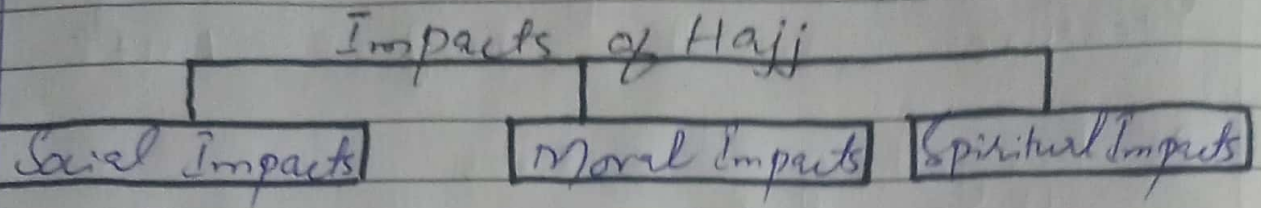 Impacts of Hajj
Social Impacts
Moral Impacts
Spiritual Impacts